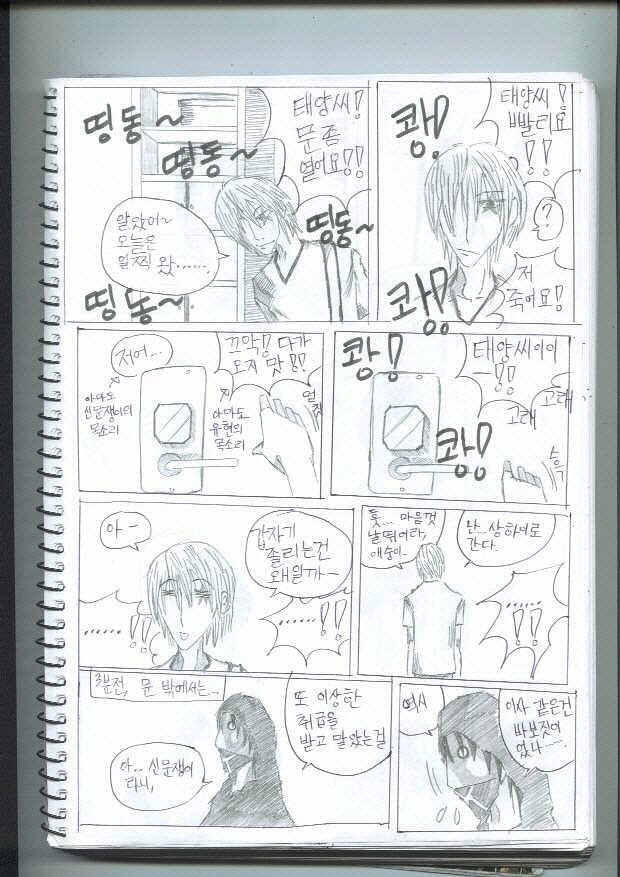 띵동~
띵동~
태양씨!
문 좀
열어요!!
알았어~
오늘은
일찍 왔......
띵동~
띵동~
쾅!
태양씨!
빨리요
!!
?
저
죽어요!
쾅!
저어...
아마도
신문쟁이의
목소리
끄악! 다가
오지 맛!!
아마도
유현의
목소리
쾅!
태양씨이이
ㅡ!!
고래
고래
쾅!
슥
아-
갑자기
졸리는건
왜일까~
......!!
......!!
훗... 마음껏
날뛰어라,
애송이.
난..상하이로
간다.
......!!
......!!
3분전, 문 밖에서는...
아.. 신문쟁이
라니,
또 이상한
취급을
받고 말았는걸
역시
이사 같은건
바보짓이
었나......